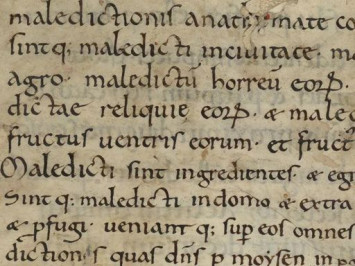 maledictionis anatēmate co
sint q; maledicti in ciuitate · m
agro · maledictū horreū eorꝝ ·
dictae reliquie eorꝝ · & maled
fructus uentris eorum · et fruct
Maledicti sint ingredientes & eg
Sint q; maledicti in domo & extra
& ꝓfugi · ueniant q; sup̄ eos omnes
diction s quas dn̄s p moysen in